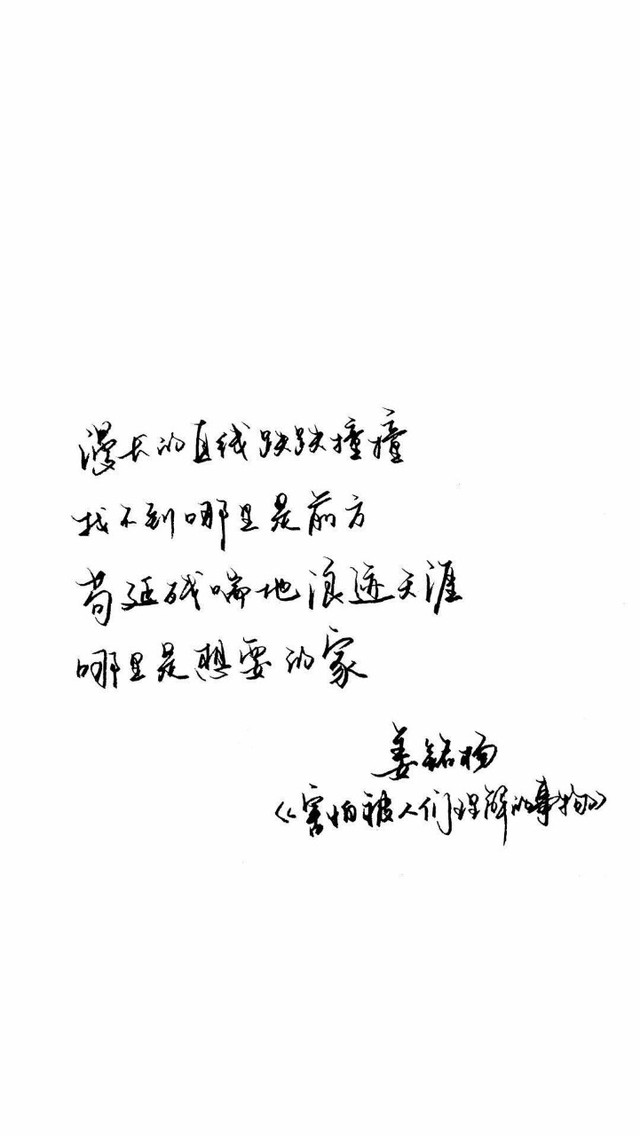 漫长的直线跌跌撞撞
找不到哪里是前方
苟延残喘地浪迹天涯
哪里是想要的家
姜铭杨
《害怕被人们理解的事物》